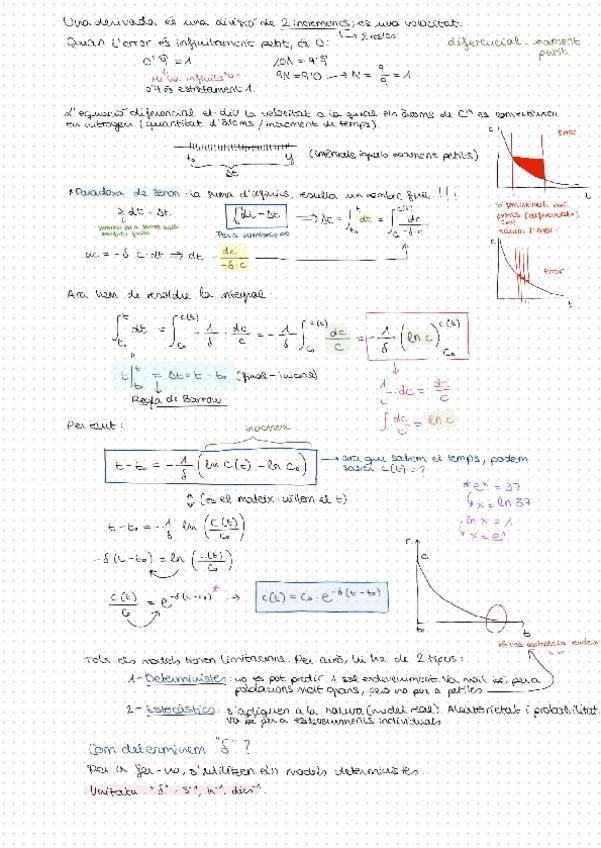 Una derivada és una divisió de 2 increments; és una velocitat.
Quan l'error és infinitament petit, és 0:
diferencial: summament petit
0'9 = 1
10N = 9'9
9N = 9'0 → N = 9/9 = 1
0'9 és estrictament 1.
L'equació diferencial et diu la velocitat a la qual els àtoms de C¹⁴ es converteixen
en nitrogen (quantitat d'àtoms / increment de temps)
t₀ Δt
(intervals iguals summament petits)
c Error t
*Paradoxa de Zenon: la suma d'infinits, resulta un nombre finit!!!
Σ dt = Δt
∫ dt = Δt
⇒ Δt = ∫ dt = ∫ dc / -δ·c
dc = -δ·c·dt ⇒ dt = dc / -δ·c
c Error t
Ara hem de resoldre la integral:
∫ dt = ∫ -1/δ · dc/c = -1/δ ∫ dc/c = -1/δ (ln c)
t| = Δt = t - t₀ (final - inicial)
Regla de Barrow
1/c · dc = dc/c
∫ dc/c = ln c
Per tant:
increment
t - t₀ = -1/δ (ln c(t) - ln c₀)
→ ara que sabem el temps, podem
saber c(t) = ?
(és el mateix: volem el t)
t - t₀ = -1/δ ln (c(t)/c₀)
-δ(t - t₀) = ln (c(t)/c₀)
c(t)/c₀ = e^-δ(t-t₀)* → c(t) = c₀ · e^-δ(t-t₀)
*eˣ = 37
x = ln 37
ln x = 1
x = e¹
Tots els models tenen limitacions. Per això, hi ha de 2 tipus:
1- Deterministes: no es pot predir 1 sol esdeveniment. Va molt bé per a
poblacions molt grans, però no per a petites
2- Estocàstics: s'apliquen a la natura (model real). Aleatorietat i probabilitat.
va bé per a esdeveniments individuals
Com determinem "δ"?
Per a fer-ho, s'utilitzen els models deterministes.
Unitats "δ": s⁻¹, h⁻¹, dies⁻¹.